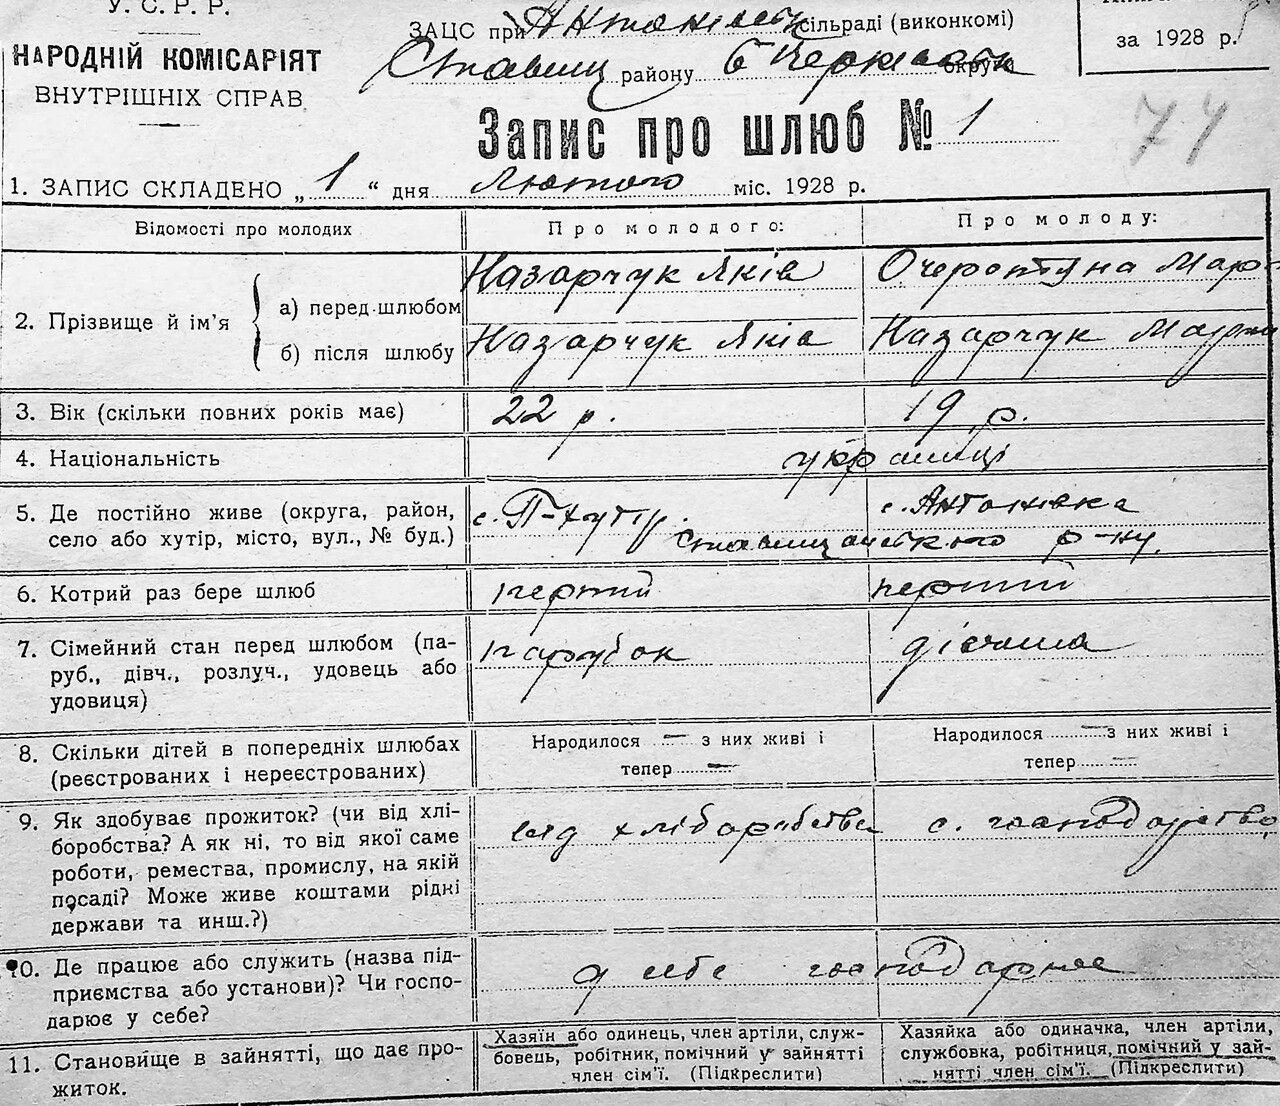 У.С.Р.Р.
НАРОДНІЙ КОМІСАРІЯТ
ВНУТРІШНІХ СПРАВ.
ЗАЦС при сільраді (виконкомі)
району округи
за 1928 р.
74
Запис про шлюб № 1
1. ЗАПИС СКЛАДЕНО „ 1 “ дня Лютого міс. 1928 р.
Відомості про молодих Про молодого: Про молоду:
2. Прізвище й ім'я
а) перед шлюбом Назарчук Яків Мар
б) після шлюбу Назарчук Яків Назарчук
3. Вік (скільки повних років має) 22 р. 19 р.
4. Національність українці
5. Де постійно живе (округа, район, с. П-хутір. с. Антонівка
село або хутір, місто, вул., № буд.) р-ну.
6. Котрий раз бере шлюб перший перший
7. Сімейний стан перед шлюбом (па- парубок дівчина
руб., дівч., розлуч., удовець або
удовиця)
8. Скільки дітей в попередніх шлюбах Народилося — з них живі і Народилося — з них живі і
(реєстрованих і нереєстрованих) тепер — тепер —
9. Як здобуває прожиток? (чи від хлі- від хліборобства с. господарство
боробства? А як ні, то від якої саме
роботи, ремества, промислу, на якій
посаді? Може живе коштами рідні
держави та инш.?)
10. Де працює або служить (назва під- у себе господарює
приємства або установи)? Чи госпо-
дарює у себе?
11. Становище в зайнятті, що дає про- Хазяїн або одинець, член артілі, служ- Хазяйка або одиначка, член артілі,
житок. бовець, робітник, помічний у зайнятті службовка, робітниця, помічний у зай-
член сім'ї. (Підкреслити) нятті член сім'ї. (Підкреслити)